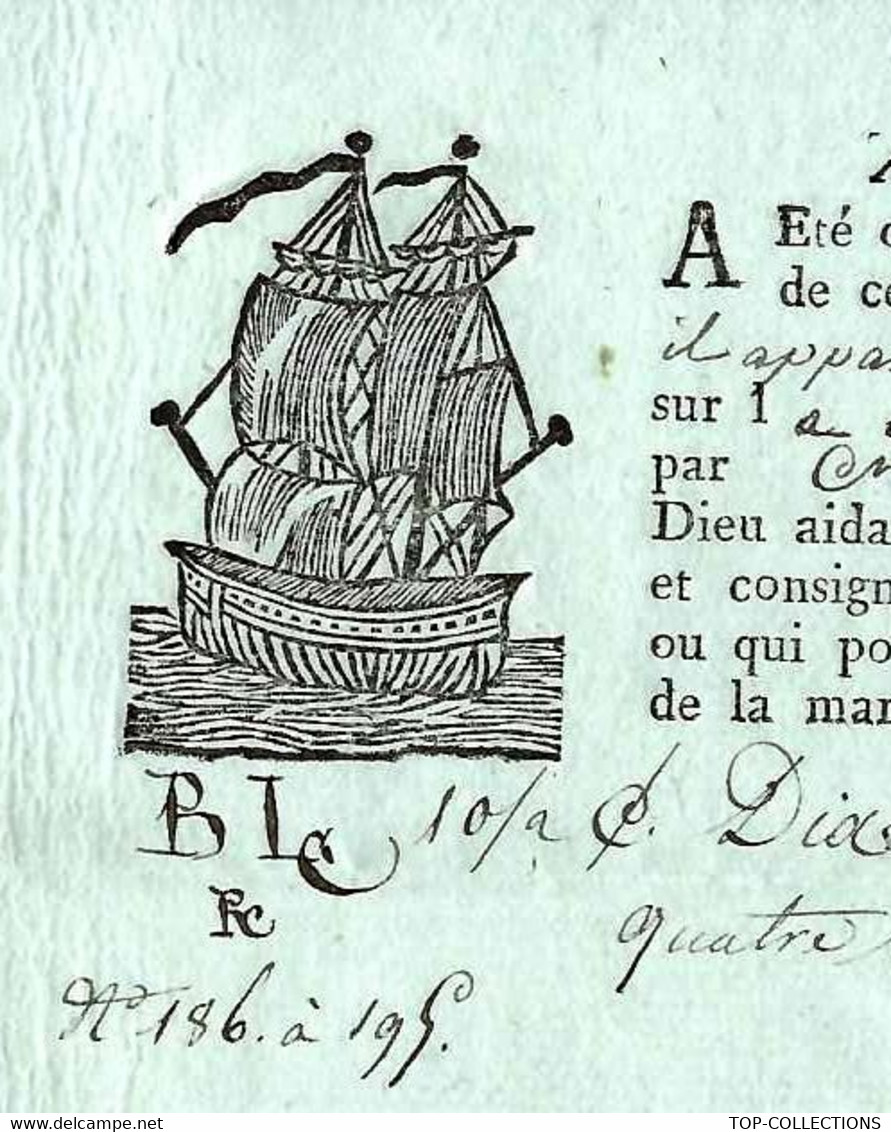 A Eté
de ce
il appa
sur l a
par
Dieu aida
et consign
ou qui po
de la mar
B L C 10/a C. Dix
RC quatre
No 186. à 195.
TOP-COLLECTIONS